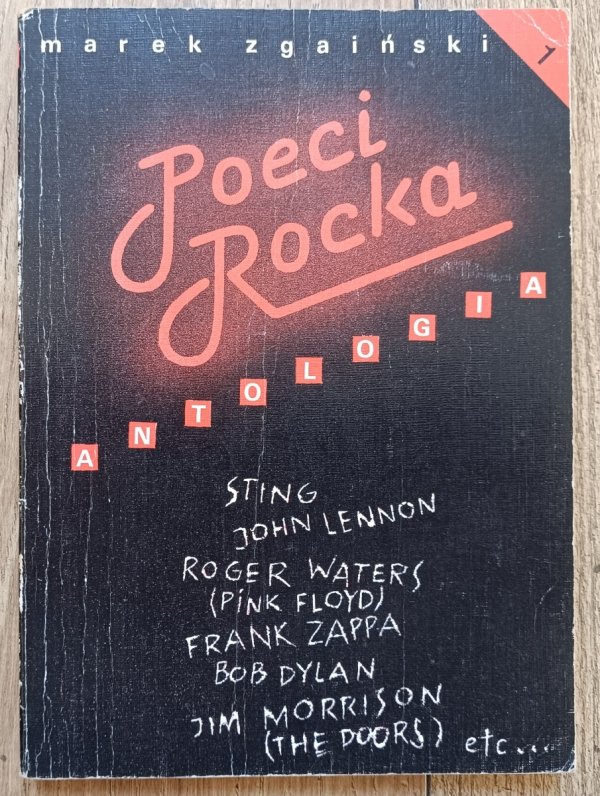 marek zgaiński
1
Poeci
Rocka
ANTOLOGIA
STING
JOHN LENNON
ROGER WATERS
(PINK FLOYD)
FRANK ZAPPA
BOB DYLAN
JIM MORRISON
(THE DOORS) etc...